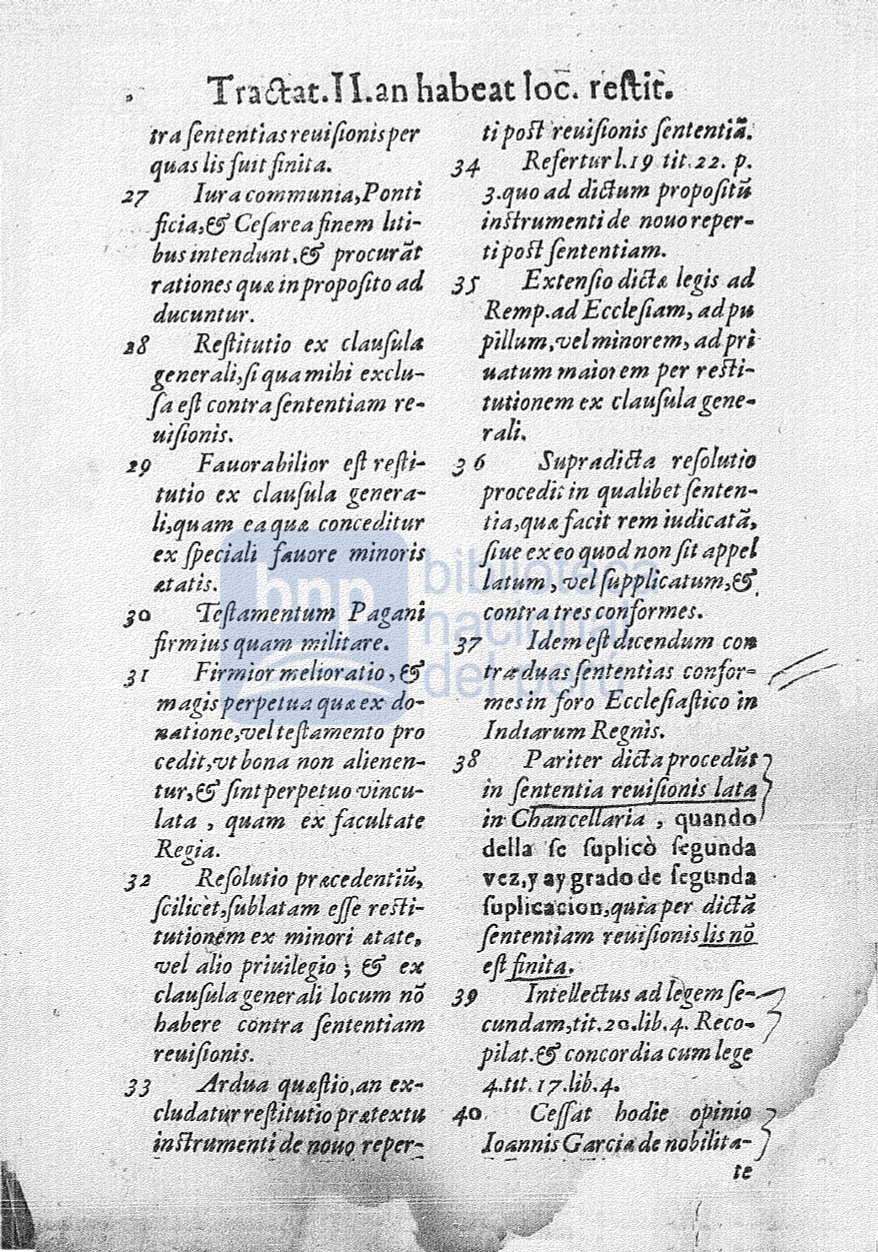 Tractat.II.an habeat loc̄. restit.
tra sententias reuisionis per
quas lis fuit finita.
27 Iura communia, Ponti
ficia, & Cesarea finem liti-
bus intendunt, & procurāt
rationes quæ in proposito ad
ducuntur.
28 Restitutio ex clausula
generali, si qua mihi exclu-
sa est contra sententiam re-
uisionis.
29 Fauorabilior est resti-
tutio ex clausula genera-
li, quam ea quæ conceditur
ex speciali fauore minoris
ætatis.
30 Testamentum Pagani
firmius quam militare.
31 Firmior melioratio, &
magis perpetua quæ ex do-
natione, vel testamento pro
cedit, vt bona non alienen-
tur, & sint perpetuo vincu-
lata, quam ex facultate
Regia.
32 Resolutio præcedentiū,
scilicèt, sublatam esse resti-
tutionem ex minori ætate,
vel alio priuilegio; & ex
clausula generali locum nō
habere contra sententiam
reuisionis.
33 Ardua quæstio, an ex-
cludatur restitutio prætextu
instrumenti de nouo reper-
ti post reuisionis sententiā.
34 Refertur l.19 tit.22. p.
3. quo ad dictum propositū
instrumenti de nouo reper-
ti post sententiam.
35 Extensio dictæ legis ad
Remp. ad Ecclesiam, ad pu
pillum, vel minorem, ad pri
uatum maiorem per resti-
tutionem ex clausula gene-
rali.
36 Supradicta resolutio
procedit in qualibet senten-
tia, quæ facit rem iudicatā,
siue ex eo quod non sit appel
latum, vel supplicatum, &
contra tres conformes.
37 Idem est dicendum con
træ duas sententias confor-
mes in foro Ecclesiastico in
Indiarum Regnis.
38 Pariter dicta procedūt
in sententia reuisionis lata
in Chancellaria, quando
della se suplicò segunda
vez, y ay grado de segunda
suplicacion, quia per dictā
sententiam reuisionis lis nō
est finita.
39 Intellectus ad legem se-
cundam, tit.20.lib.4. Reco-
pilat. & concordia cum lege
4.tit.17.lib.4.
40 Cessat hodie opinio
Ioannis Garcia de nobilita-
te
bnp biblioteca
nacional
del perú